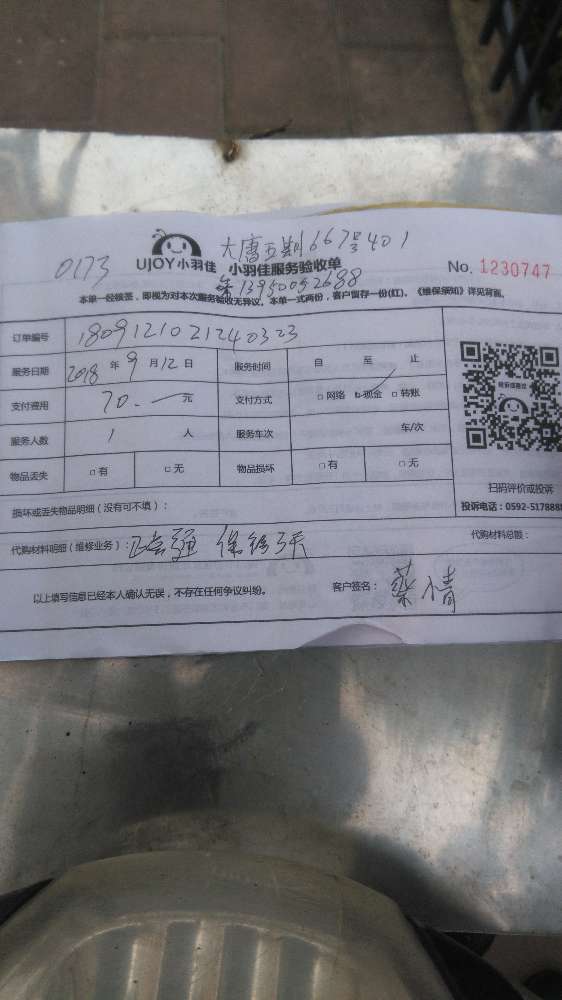 大唐五期667号401
0173 UJOY小羽佳 小羽佳服务验收单 No. 1230747
朱13950052688
本单一经核签,即视为对本次服务验收无异议。本单一式两份,客户留存一份(红)。《维保须知》详见背面。
订单编号 1809121021240323
服务日期 2018 年 9 月 12 日 服务时间 自 至 止
支付费用 70.— 元 支付方式 □网络 □现金 □转账
服务人数 1 人 服务车次 车/次
物品丢失 □有 □无 物品损坏 □有 □无
扫码评价或投诉
损坏或丢失物品明细(没有可不填): 投诉电话:0592-5178888
代购材料明细(维修业务): 代购材料总额:
以上填写信息已经本人确认无误,不存在任何争议纠纷。 客户签名: 蔡情